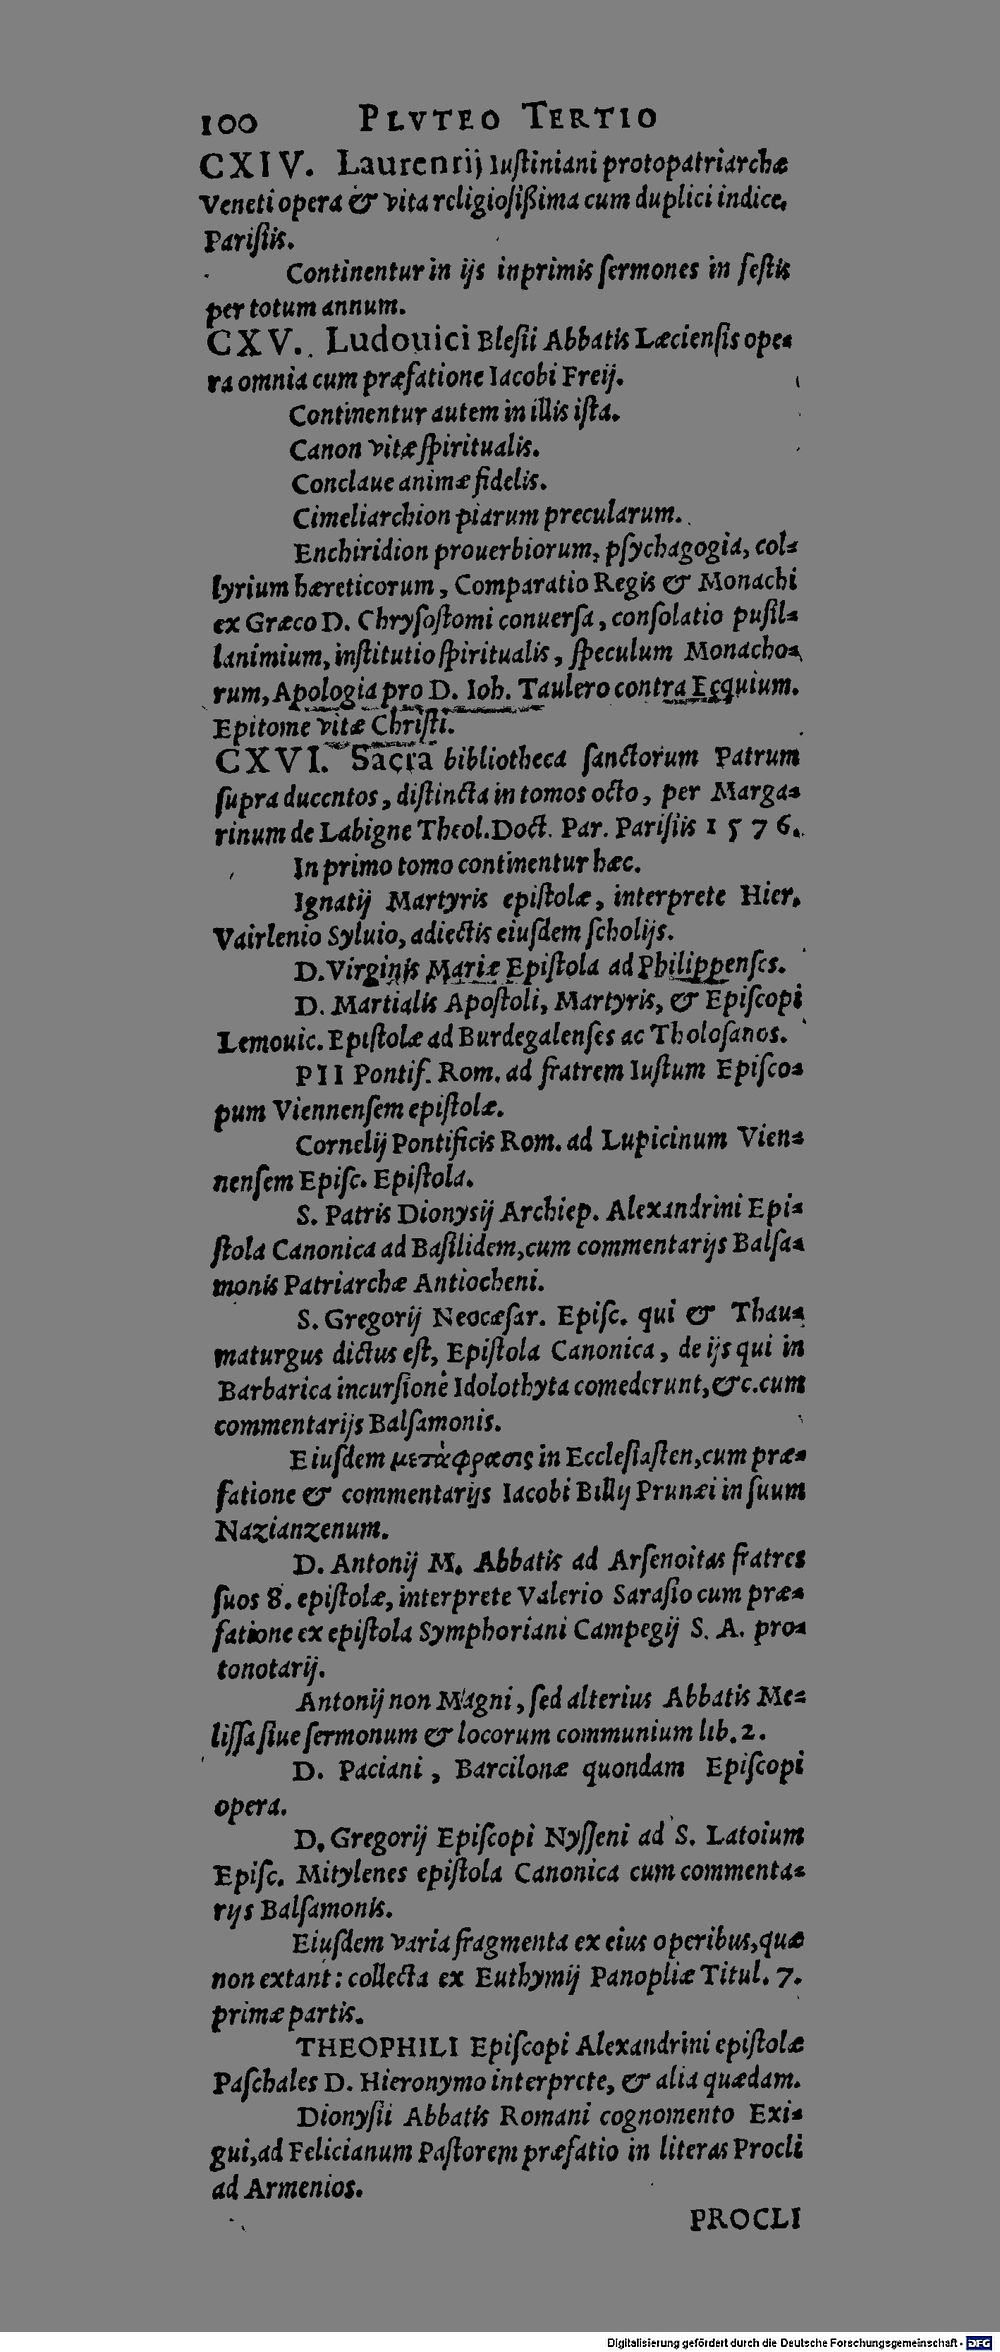 100 PLVTEO TERTIO
CXIV. Laurentij Iuſtiniani protopatriarchæ
Veneti opera & vita religioſißima cum duplici indice,
Pariſiis.
Continentur in ijs inprimis ſermones in feſtis
per totum annum.
CXV. Ludouici Bleſii Abbatis Læcienſis ope-
ra omnia cum præfatione Iacobi Freij.
Continentur autem in illis iſta.
Canon vitæ ſpiritualis.
Conclaue animæ fidelis.
Cimeliarchion piarum precularum.
Enchiridion prouerbiorum, pſychagogia, col-
lyrium hæreticorum, Comparatio Regis & Monachi
ex Græco D. Chryſoſtomi conuerſa, conſolatio puſil-
lanimium, inſtitutio ſpiritualis, ſpeculum Monacho-
rum, Apologia pro D. Ioh. Taulero contra Ecquium.
Epitome vitæ Chriſti.
CXVI. Sacra bibliotheca ſanctorum Patrum
ſupra ducentos, diſtincta in tomos octo, per Marga-
rinum de Labigne Theol. Doct. Par. Pariſiis 1576.
In primo tomo continentur hæc.
Ignatij Martyris epiſtolæ, interprete Hier.
Vairlenio Syluio, adiectis eiuſdem ſcholijs.
D. Virginis Mariæ Epiſtola ad Philippenſes.
D. Martialis Apoſtoli, Martyris, & Epiſcopi
Lemouic. Epiſtolæ ad Burdegalenſes ac Tholoſanos.
PII Pontif. Rom. ad fratrem Iuſtum Epiſco-
pum Viennenſem epiſtolæ.
Cornelij Pontificis Rom. ad Lupicinum Vien-
nenſem Epiſc. Epiſtola.
S. Patris Dionysij Archiep. Alexandrini Epi-
ſtola Canonica ad Baſilidem, cum commentarijs Balſa-
monis Patriarchæ Antiocheni.
S. Gregorij Neocæſar. Epiſc. qui & Thau-
maturgus dictus eſt, Epiſtola Canonica, de ijs qui in
Barbarica incurſione Idolothyta comederunt, &c. cum
commentarijs Balſamonis.
Eiuſdem μετάφρασις in Eccleſiaſten, cum præ-
fatione & commentarijs Iacobi Billij Prunæi in ſuum
Nazianzenum.
D. Antonij M. Abbatis ad Arſenoitas fratres
ſuos 8. epiſtolæ, interprete Valerio Saraſio cum præ-
fatione ex epiſtola Symphoriani Campegij S. A. pro-
tonotarij.
Antonij non Magni, ſed alterius Abbatis Me-
liſſa ſiue ſermonum & locorum communium lib. 2.
D. Paciani, Barcilonæ quondam Epiſcopi
opera.
D. Gregorij Epiſcopi Nyſſeni ad S. Latoium
Epiſc. Mitylenes epiſtola Canonica cum commenta-
rijs Balſamonis.
Eiuſdem varia fragmenta ex eius operibus, quæ
non extant: collecta ex Euthymij Panopliæ Titul. 7.
primæ partis.
THEOPHILI Epiſcopi Alexandrini epiſtolæ
Paſchales D. Hieronymo interprete, & alia quædam.
Dionyſii Abbatis Romani cognomento Exi-
gui, ad Felicianum Paſtorem præfatio in literas Procli
ad Armenios.
PROCLI
Digitalisierung gefördert durch die Deutsche Forschungsgemeinschaft - DFG